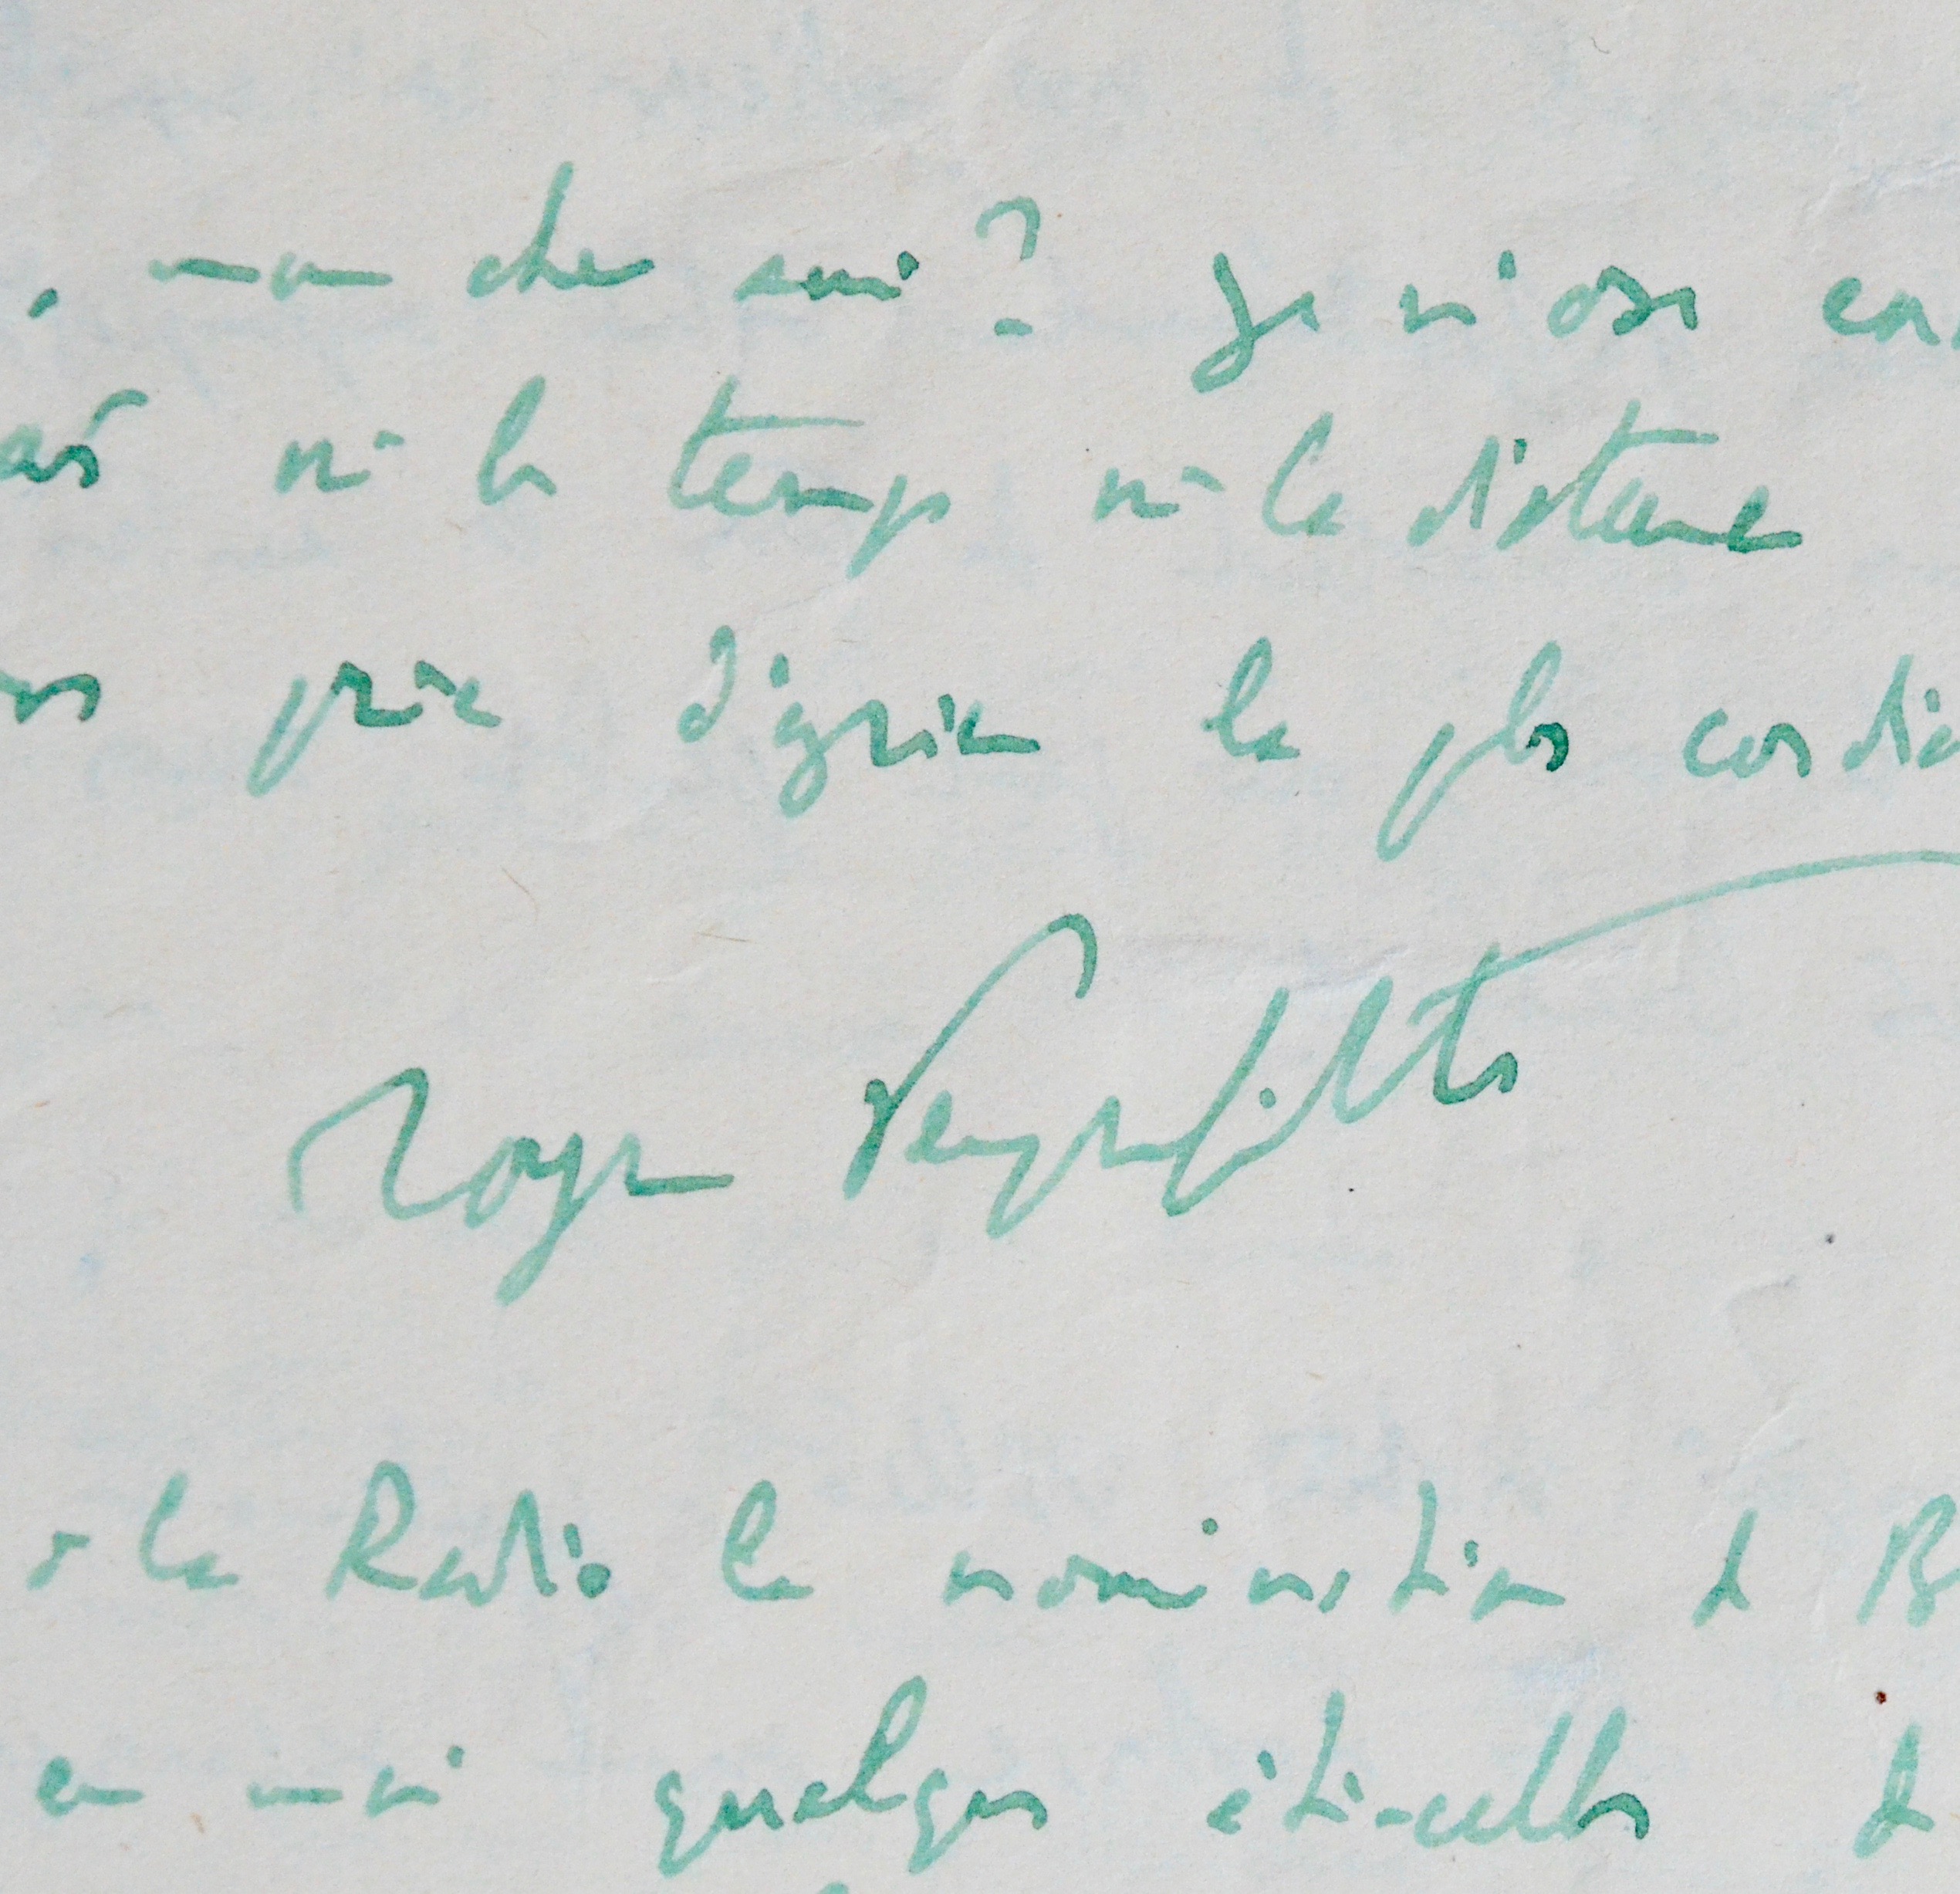 , mon cher ami? Je n'ose en
ni le temps ni la distance
prie d'agréer la plus cordia
Roger Peyrefitte
la Radio la nomination de B
en moi quelques étincelles de